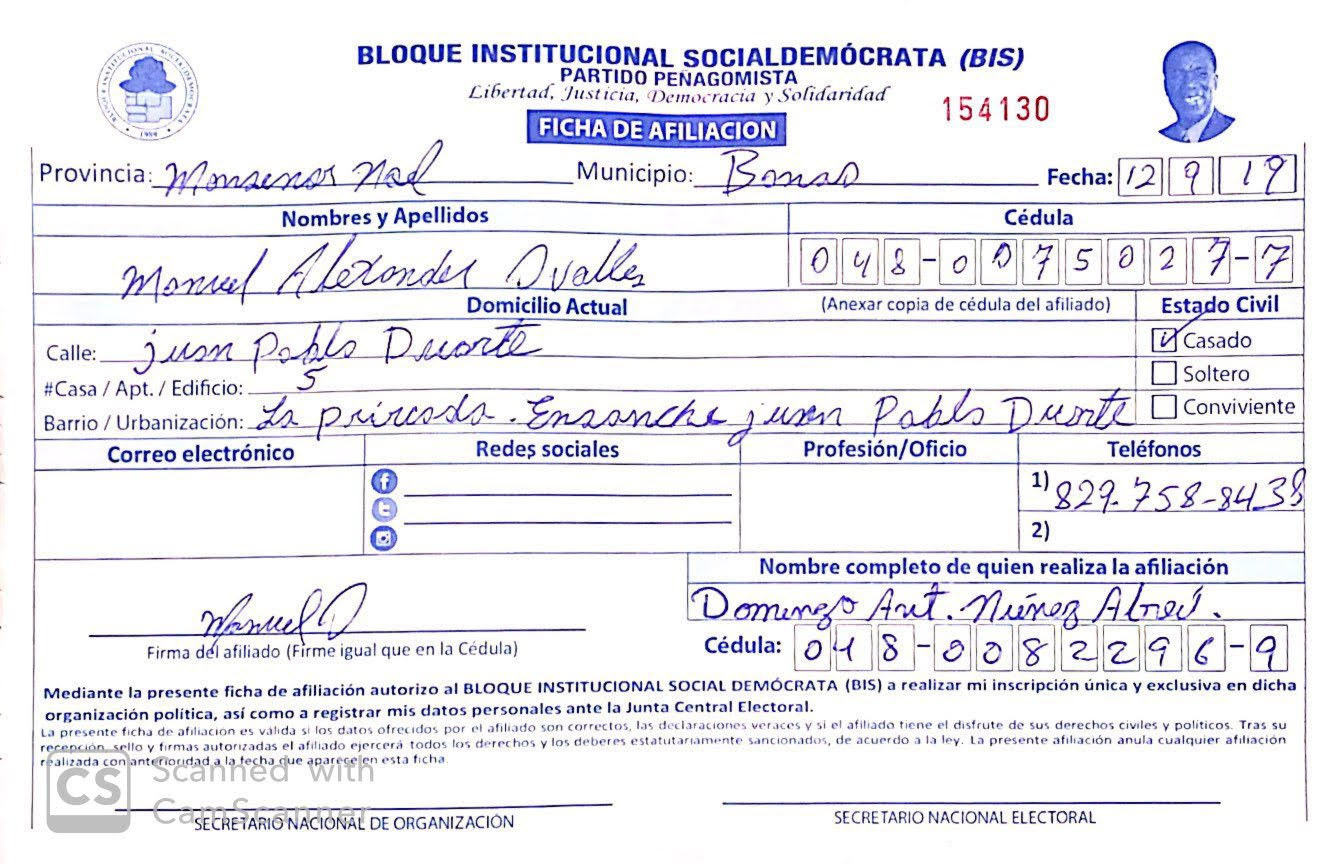 BLOQUE INSTITUCIONAL SOCIALDEMÓCRATA (BIS)
PARTIDO PEÑAGOMISTA
Libertad, Justicia, Democracia y Solidaridad
154130
FICHA DE AFILIACION
Provincia: Monsenor Noel Municipio: Bonao Fecha: 12 9 19
Nombres y Apellidos Cédula
Manuel Alexander Ovalles 048-0075027-7
Domicilio Actual (Anexar copia de cédula del afiliado) Estado Civil
Calle: juan Pablo Duarte Casado
#Casa / Apt. / Edificio: 5 Soltero
Barrio / Urbanización: La . Ensanche juan Pablo Duarte Conviviente
Correo electrónico Redes sociales Profesión/Oficio Teléfonos
1) 829-758-8438
2)
Nombre completo de quien realiza la afiliación
Domingo Ant. Núñez Abreú.
Manuel O
Firma del afiliado (Firme igual que en la Cédula) Cédula: 048-0082296-9
Mediante la presente ficha de afiliación autorizo al BLOQUE INSTITUCIONAL SOCIAL DEMÓCRATA (BIS) a realizar mi inscripción única y exclusiva en dicha
organización política, así como a registrar mis datos personales ante la Junta Central Electoral.
La presente ficha de afiliacion es válida si los datos ofrecidos por el afiliado son correctos, las declaraciones veraces y si el afiliado tiene el disfrute de sus derechos civiles y politicos. Tras su
recepción, sello y firmas autorizadas el afiliado ejercerá todos los derechos y los deberes estatutariamente sancionados, de acuerdo a la ley. La presente afiliación anula cualquier afiliación
realizada con anterioridad a la fecha que aparece en esta ficha.
CS Scanned with
CamScanner
SECRETARIO NACIONAL DE ORGANIZACIÓN SECRETARIO NACIONAL ELECTORAL